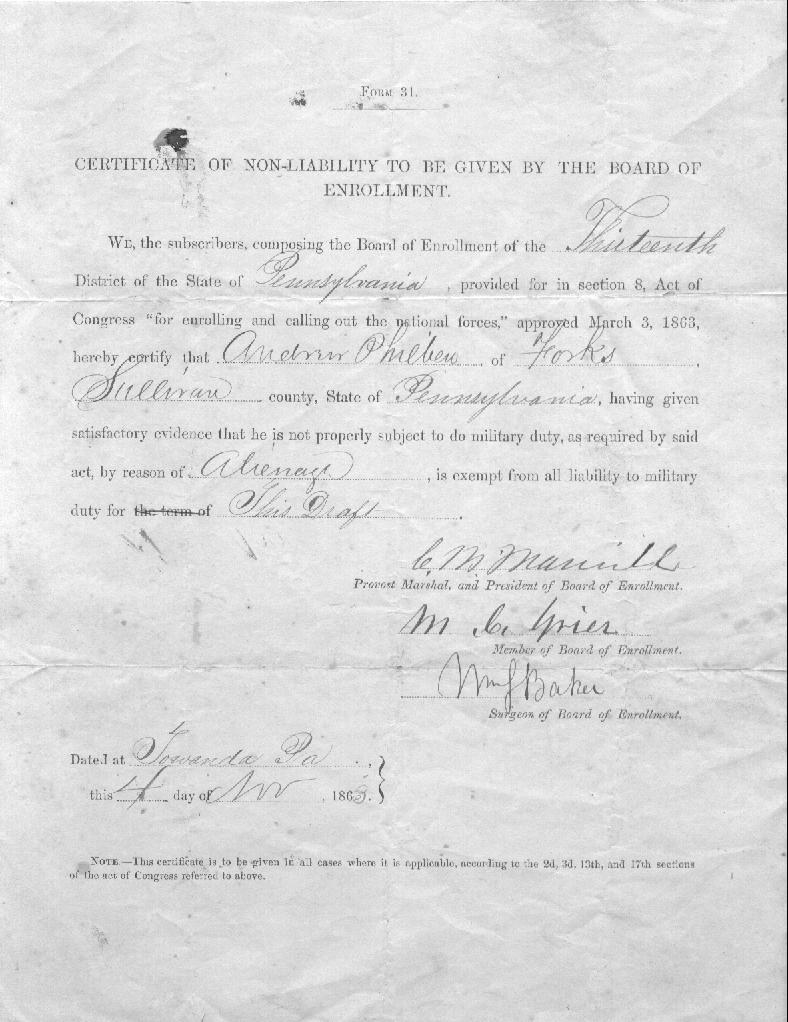 FORM 31.
CERTIFICATE OF NON-LIABILITY TO BE GIVEN BY THE BOARD OF
ENROLLMENT.
WE, the subscribers, composing the Board of Enrollment of the Thirteenth
District of the State of Pennsylvania, provided for in section 8, Act of
Congress "for enrolling and calling out the national forces," approved March 3, 1863,
hereby certify that Andrew Philbew of Forks,
Sullivan county, State of Pennsylvania, having given
satisfactory evidence that he is not properly subject to do military duty, as required by said
act, by reason of Alienage, is exempt from all liability to military
duty for the term of This Draft.
C. M. Manvill
Provost Marshal, and President of Board of Enrollment.
M C. Grier
Member of Board of Enrollment.
Wm J Baker
Surgeon of Board of Enrollment.
Dated at Towanda Pa.,
this 4 day of Nov, 1863.
NOTE.—This certificate is to be given in all cases where it is applicable, according to the 2d, 3d, 13th, and 17th sections
of the act of Congress referred to above.